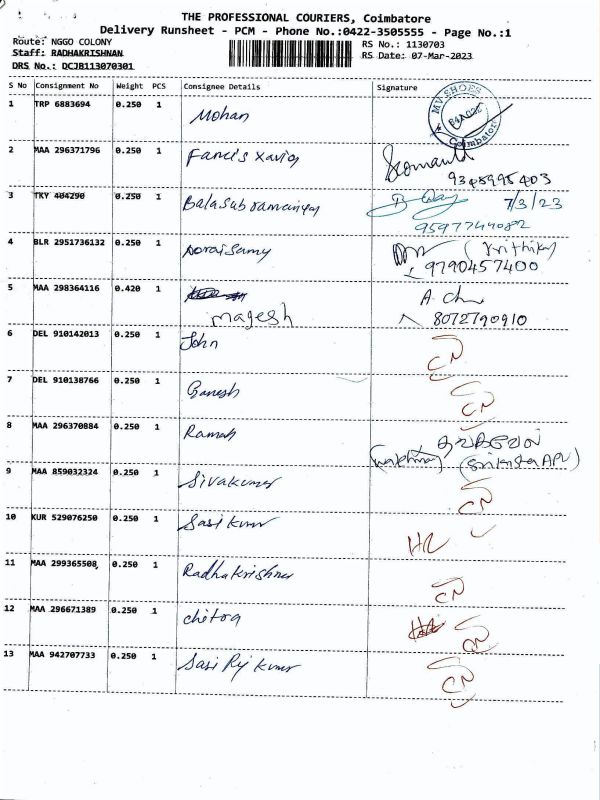 THE PROFESSIONAL COURIERS, Coimbatore
Delivery Runsheet - PCM - Phone No.:0422-3505555 - Page No.:1
Route: NGGO COLONY
RS No.: 1130703
Staff: RADHAKRISHNAN
RS Date: 07-Mar-2023
DRS No.: DCJB113070301
S No Consignment No Weight PCS Consignee Details Signature
1 TRP 6883694 0.250 1 Mohan
MV SHOES
Coimbatore
2 MAA 296371796 0.250 1 Fancis Xavior
9345995403
3 TKY 404290 0.250 1 Balasubramaniyan
7/3/23
9597744082
4 BLR 2951736132 0.250 1 Doraisamy
(Krithika)
9790457400
5 MAA 298364116 0.420 1
magesh
8072790910
6 DEL 910142013 0.250 1 John
CN
7 DEL 910138766 0.250 1 Ganesh
CN
8 MAA 296370884 0.250 1 Raman
9 MAA 859032324 0.250 1 Sivakumar
CN
10 KUR 529076250 0.250 1 Sasi kumar
11 MAA 299365508 0.250 1 Radhakrishnan
CN
12 MAA 296671389 0.250 1 chitra
CN
13 MAA 942707733 0.250 1 Sasi Raj kumar
CN